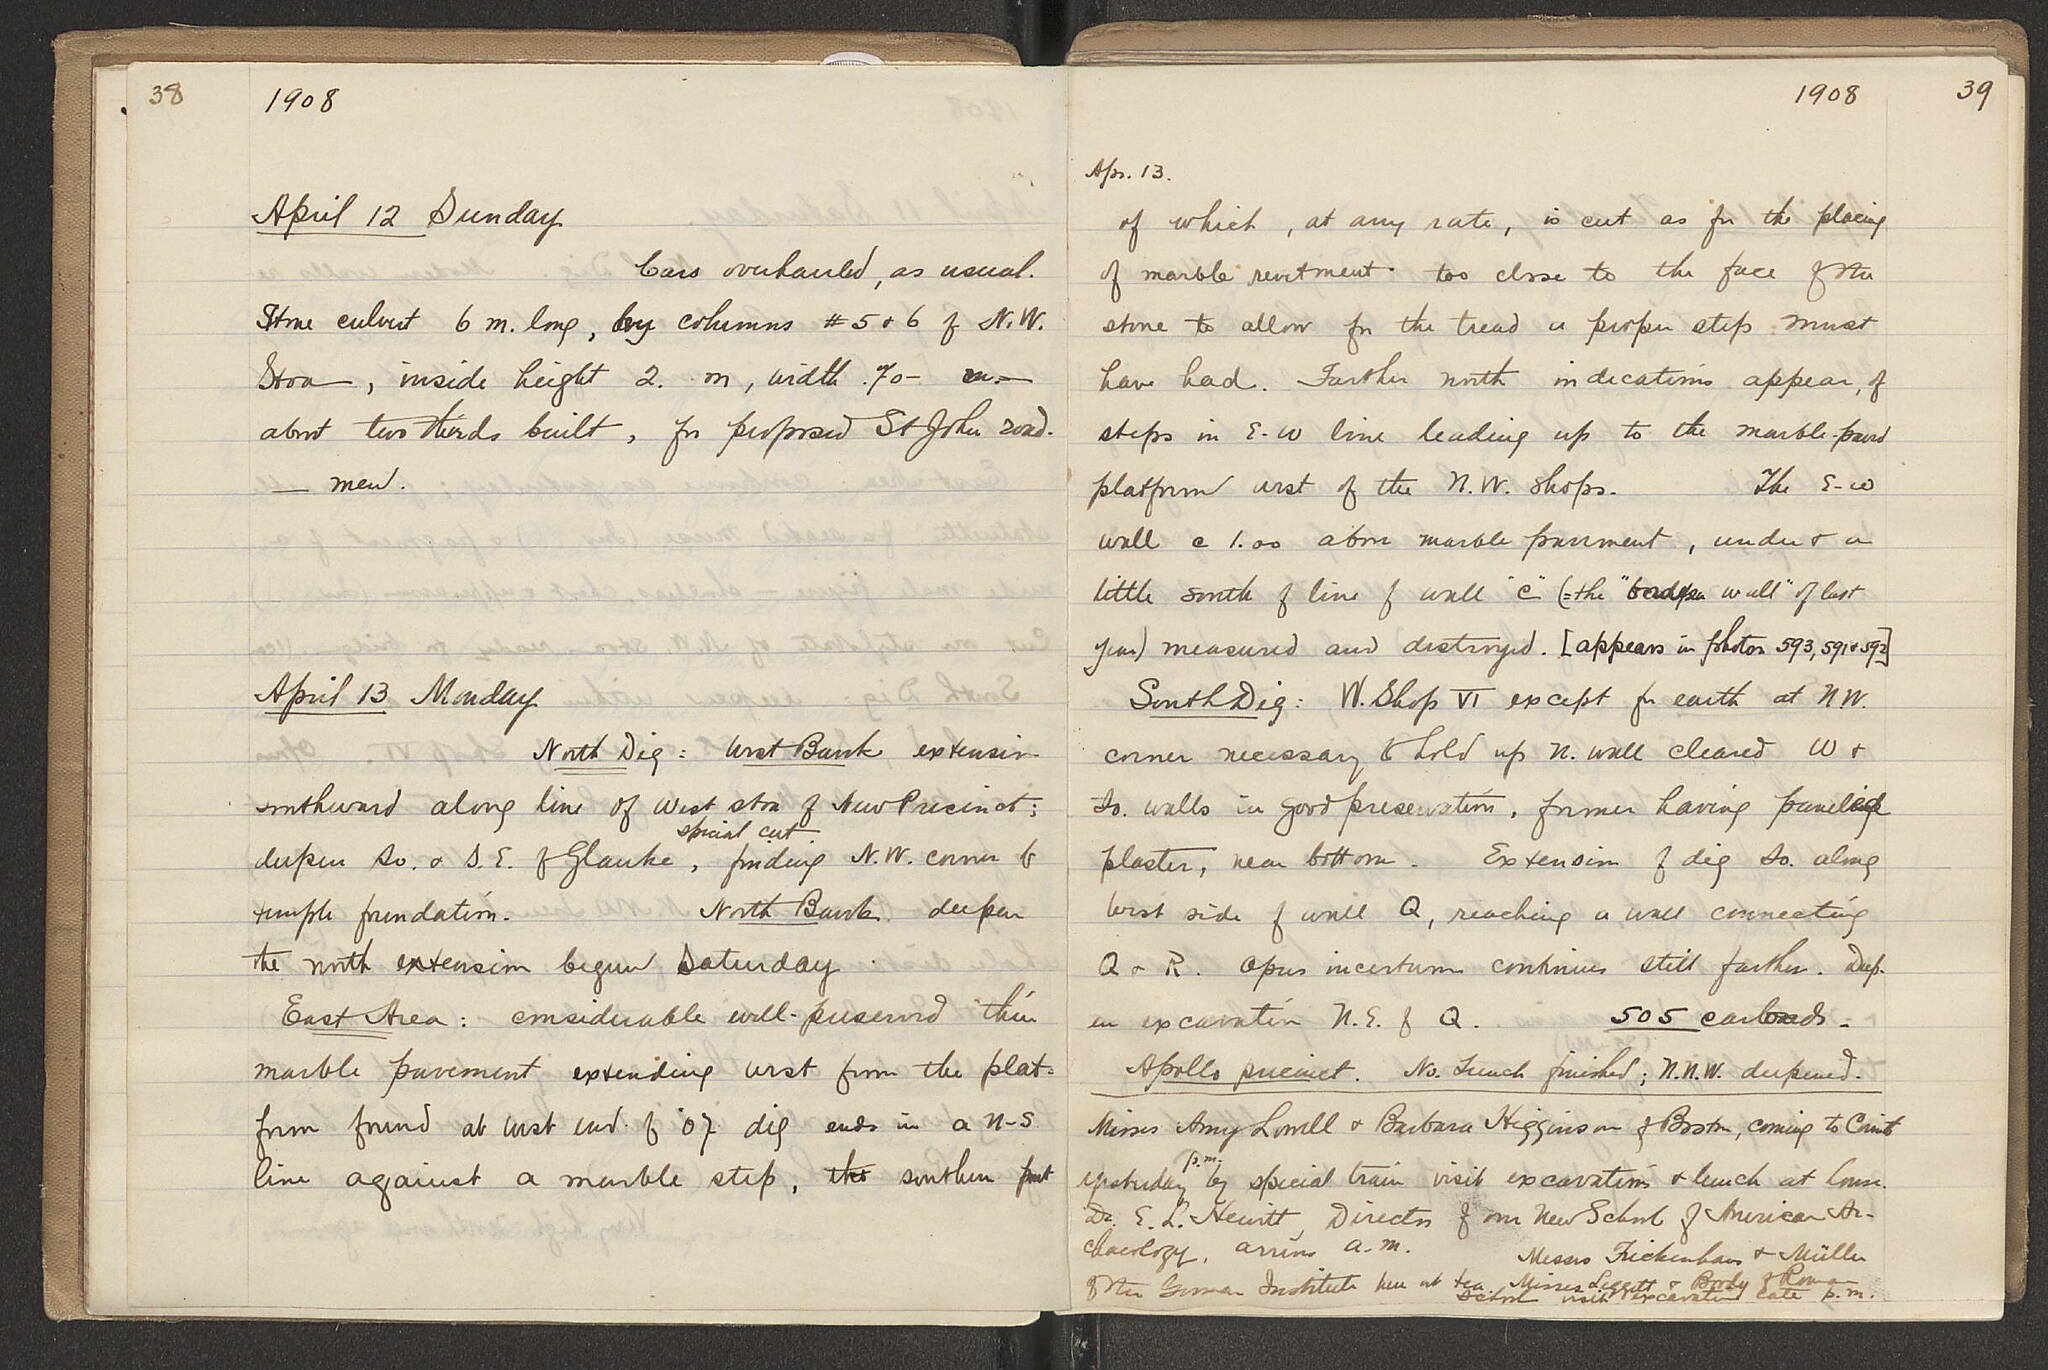 38
1908
April 12 Sunday
Cars overhauled, as usual.
Stone culvert 6 m. long, by columns #5 & 6 of N.W.
Stoa, inside height 2. m, width .70
about two thirds built, for proposed St John road.
— men.
April 13 Monday
North Dig: West Bank extension
southward along line of West stoa of New Precinct;
special cut
deepen So. & S.E. of Glauke, finding N.W. corner of
temple foundation. North Bank deepen
the north extension begun Saturday.
East Area: considerable well-preserved thin
marble pavement extending west from the plat-
form found at west end of '07 dig ends in a N-S
line against a marble step, the southern part
1908
39
Apr. 13.
of which, at any rate, is cut as for the placing
of marble revetment too close to the face of the
stone to allow for the tread a proper step must
have had. Farther north indications appear, of
steps in E-W line leading up to the marble-paved
platform west of the N.W. Shops. The E-W
wall c 1.00 above marble pavement, under & a
little south of line of wall "C" (=the wall" of last
year) measured and destroyed. [appears in photos 593, 591 & 592]
South Dig: W. Shop VI except for earth at N.W.
corner necessary to hold up N. wall cleared W &
So. walls in good preservation, former having
plaster, near bottom. Extension of dig So. along
West side of wall Q, reaching a wall connecting
Q & R. Opus incertum continues still farther. Deep-
en excavation N.E. of Q. 505 carloads.
Apollo precinct. No. Trench finished; N.N.W. deepened.
Misses Amy Lowell & Barbara Higginson of Boston, coming to Corinth
p.m.
yesterday by special train visit excavations & lunch at house.
Dr. E. L. Hewitt, Director of our New School of American Ar-
chaeology, arrives a.m. Messrs Frickenhaus & Müller
of the German Institute here at tea. Misses Leggett & of Roman
School visit excavation late p.m.